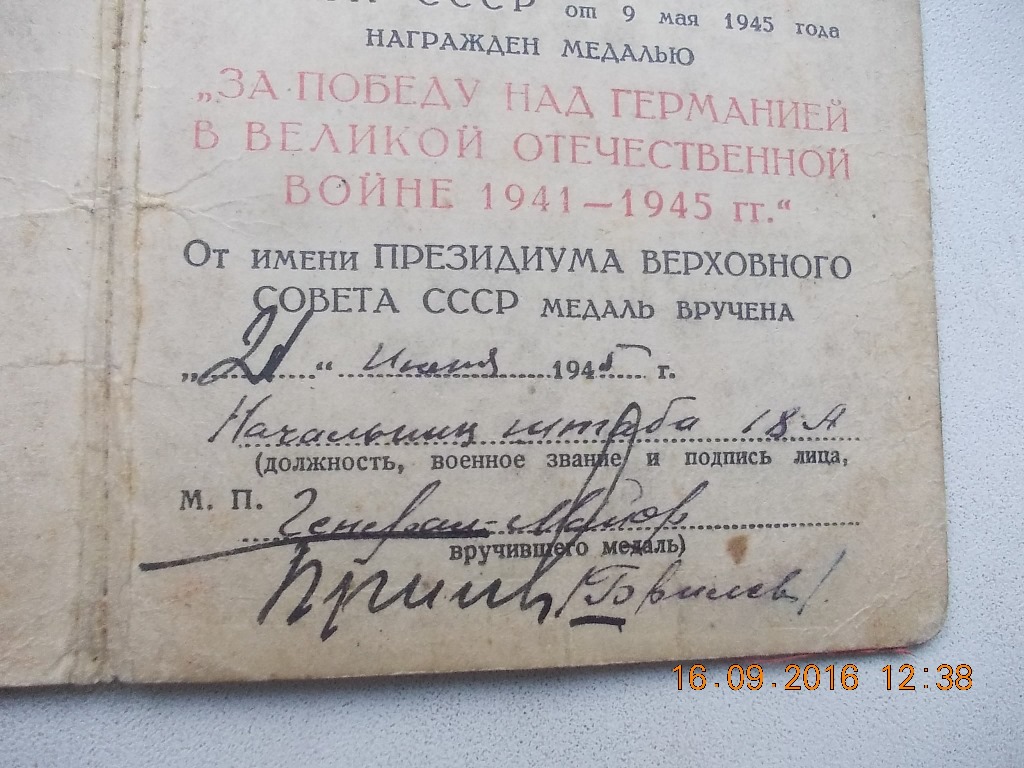 СССР от 9 мая 1945 года
НАГРАЖДЕН МЕДАЛЬЮ
„ЗА ПОБЕДУ НАД ГЕРМАНИЕЙ
В ВЕЛИКОЙ ОТЕЧЕСТВЕННОЙ
ВОЙНЕ 1941—1945 гг.“
От имени ПРЕЗИДИУМА ВЕРХОВНОГО
СОВЕТА СССР МЕДАЛЬ ВРУЧЕНА
„21“ 1945 г.
Начальник штаба 18 А
(должность, военное звание и подпись лица,
М. П. Генерал-Майор
вручившего медаль)
16.09.2016 12:38